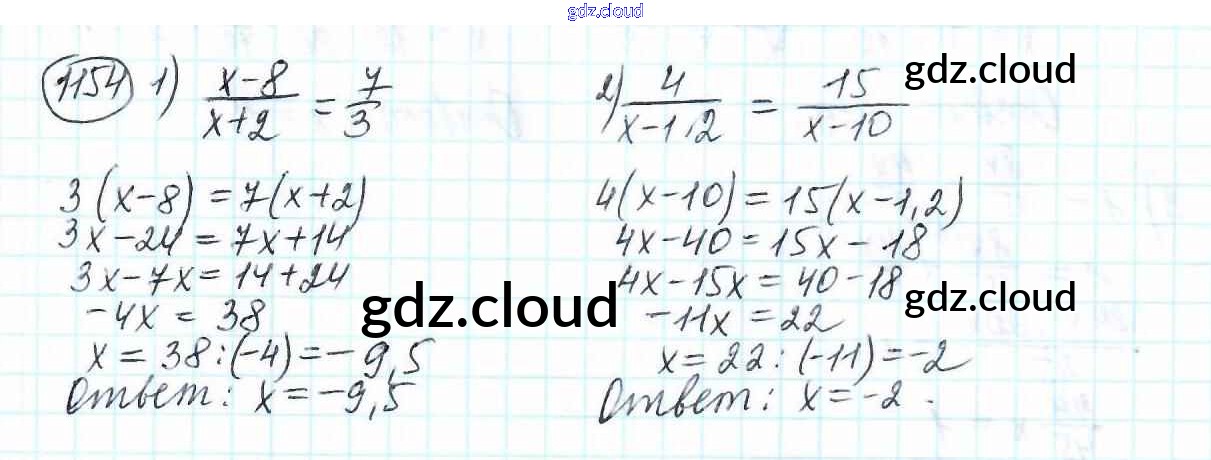 gdz.cloud
1154 1) x-8/x+2 = 7/3
3(x-8)=7(x+2)
3x-24=7x+14
3x-7x=14+24
-4x=38
x=38:(-4)=-9,5
Ответ: x=-9,5
2) 4/x-1,2 = 15/x-10
4(x-10)=15(x-1,2)
4x-40=15x-18
4x-15x=40-18
-11x=22
x=22:(-11)=-2
Ответ: x=-2.
gdz.cloud
gdz.cloud
gdz.cloud